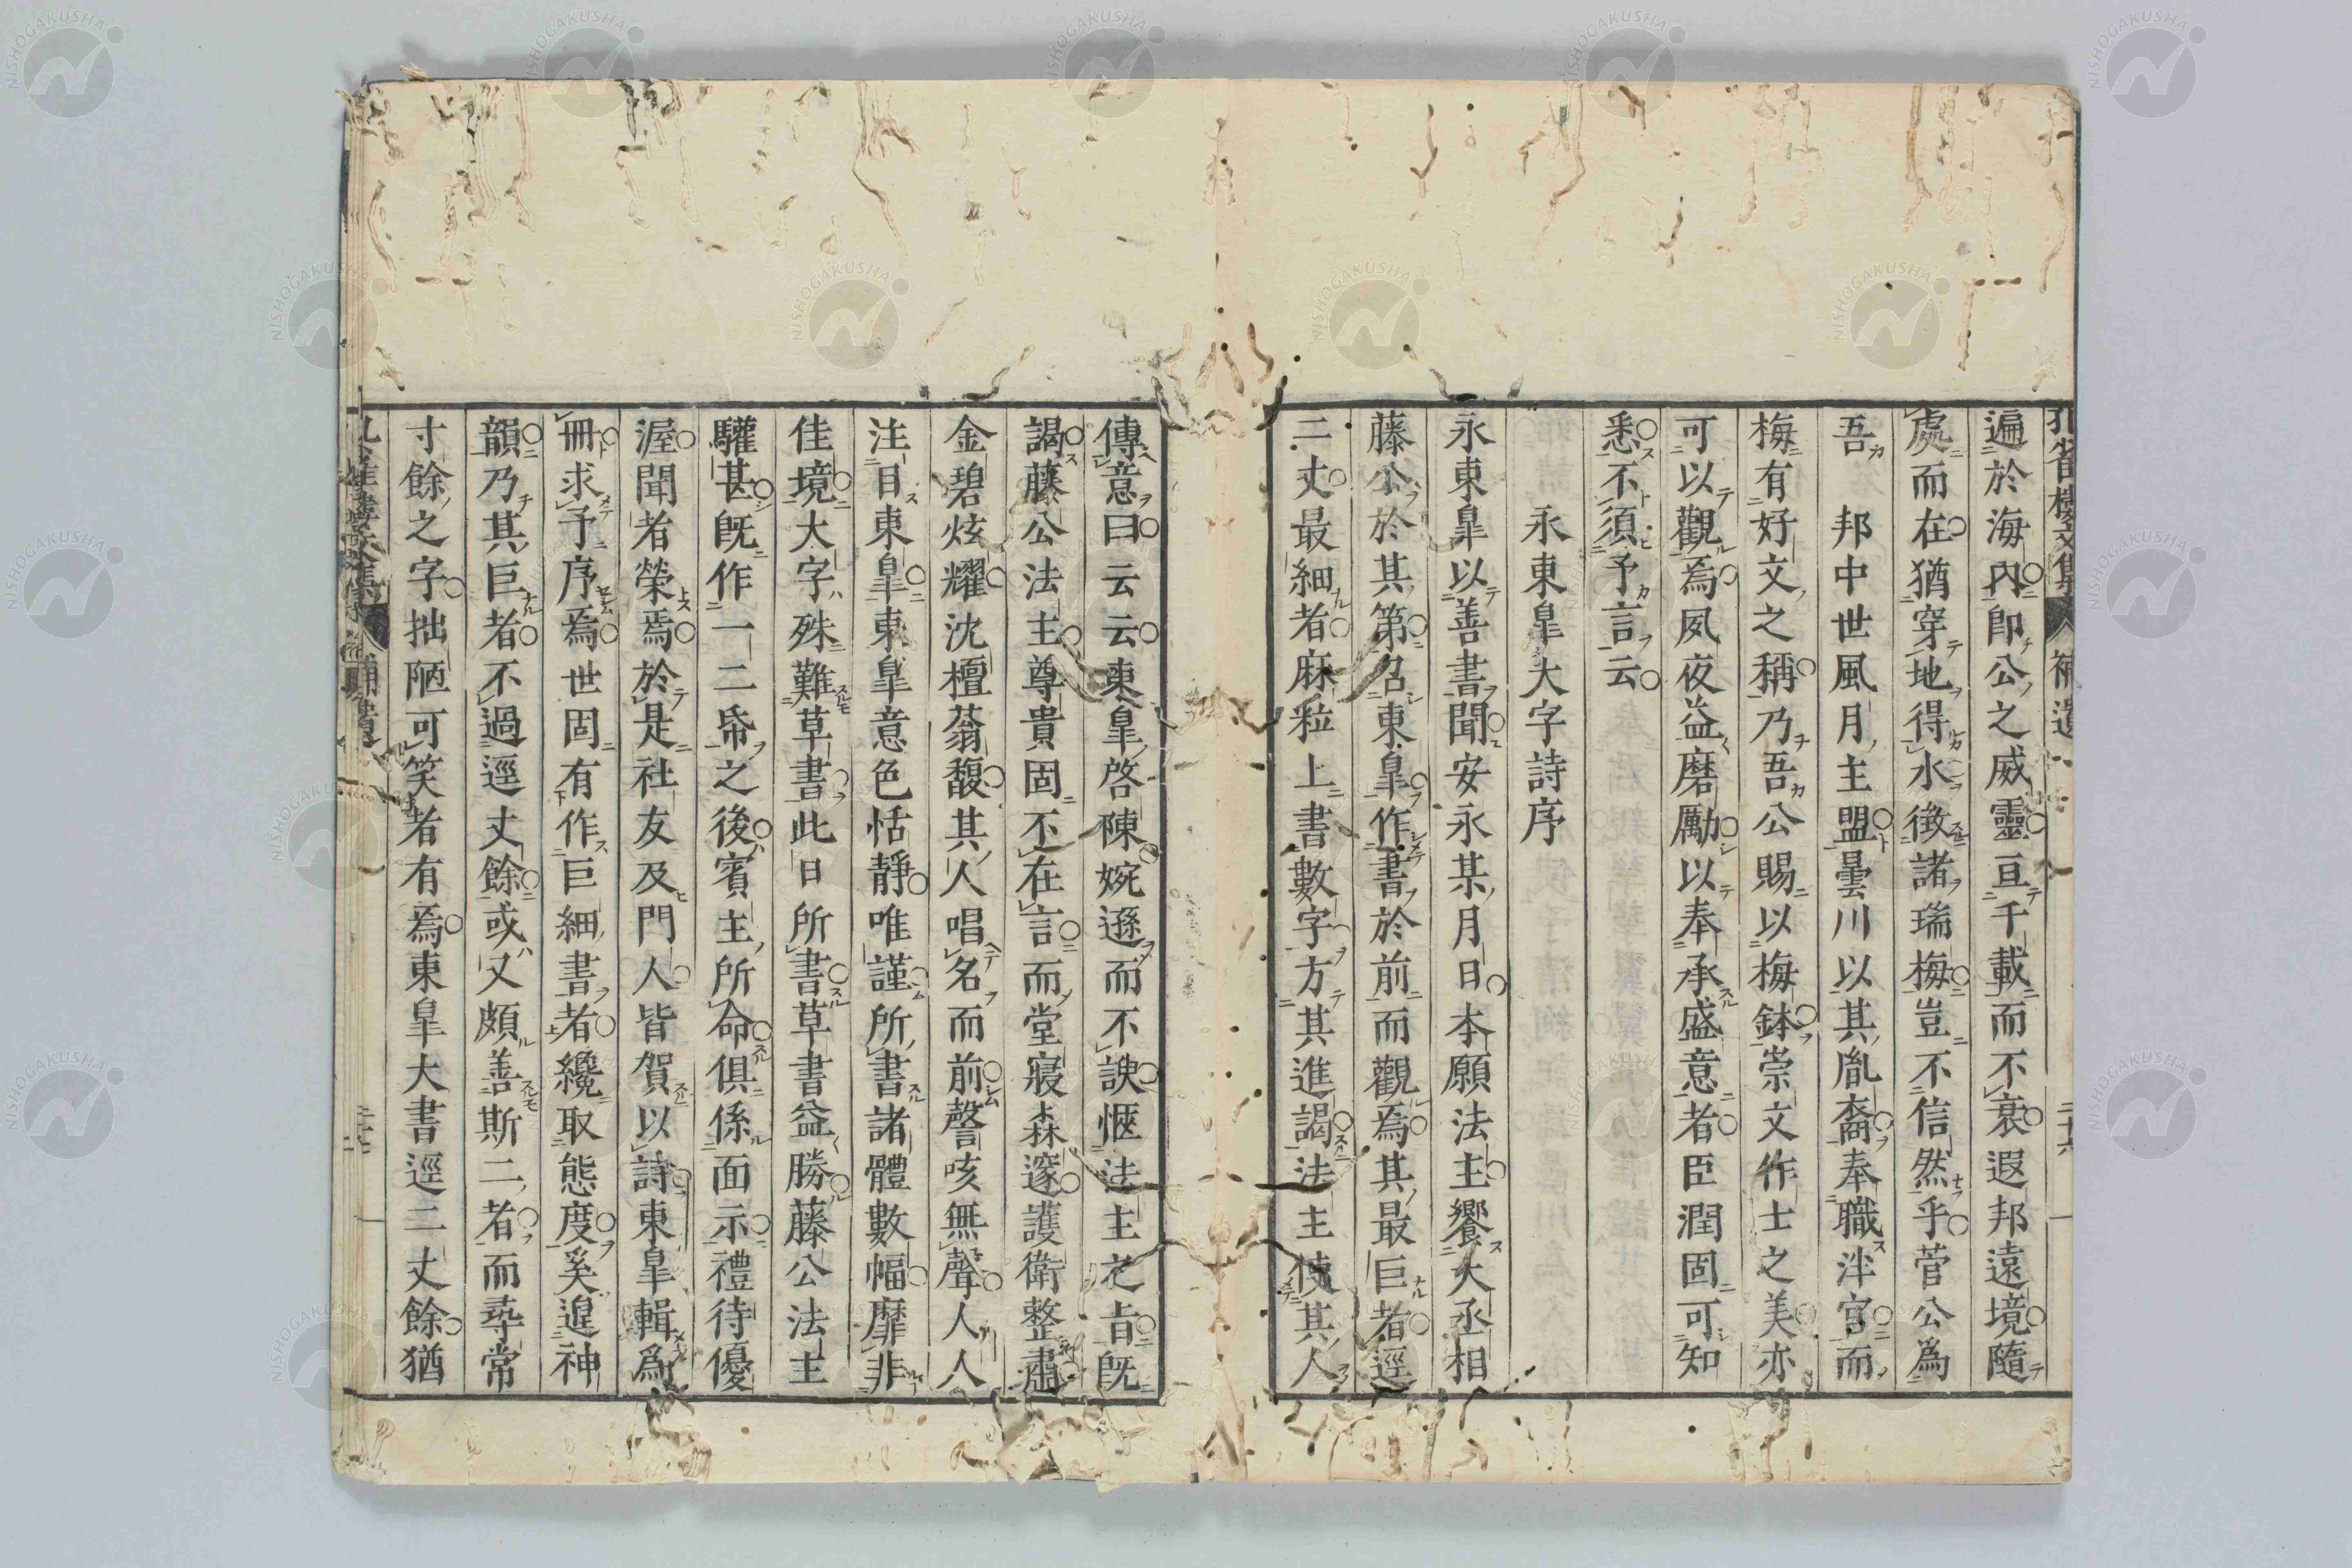 遍於海內即公之威靈亘千載而不衰遐邦遠境隨
處而在猶穿地得水徴諸瑞梅豈不信然乎菅公爲
吾邦中世風月主盟曇川以其胤裔奉職泮宮而
梅有好文之稱乃吾公賜以梅鉢崇文作士之美亦
可以觀焉夙夜益磨勵以奉承盛意者臣潤固可知
悉不須予言云
永東皐大字詩序
永東皐以善書聞安永某月日本願法主饗大丞相
藤公於其第召東皐作書於前而觀焉其最巨者逕
二丈最細者麻粒上書數字方其進謁法主使其人
傳意曰云云東皐啓陳婉遜而不諛愜法主之旨既
謁藤公法主尊貴固不在言而堂寢森邃護衛整肅
金碧炫耀沈檀蓊馥其人唱名而前謦咳無聲人人
注目東皐東皐意色恬靜唯謹所書諸體數幅靡非
佳境大字殊難草書此日所書草書益勝藤公法主
驩甚既作一二帋之後賓主所命俱係面示禮待優
渥聞者榮焉於是社友及門人皆賀以詩東皐輯爲
冊求予序焉世固有作巨細書者纔取態度奚遑神
韻乃其巨者不過逕丈餘或又頗善斯二者而尋常
寸餘之字拙陋可笑者有焉東皐大書逕二丈餘猶
孔雀樓文集
補遺
二十六